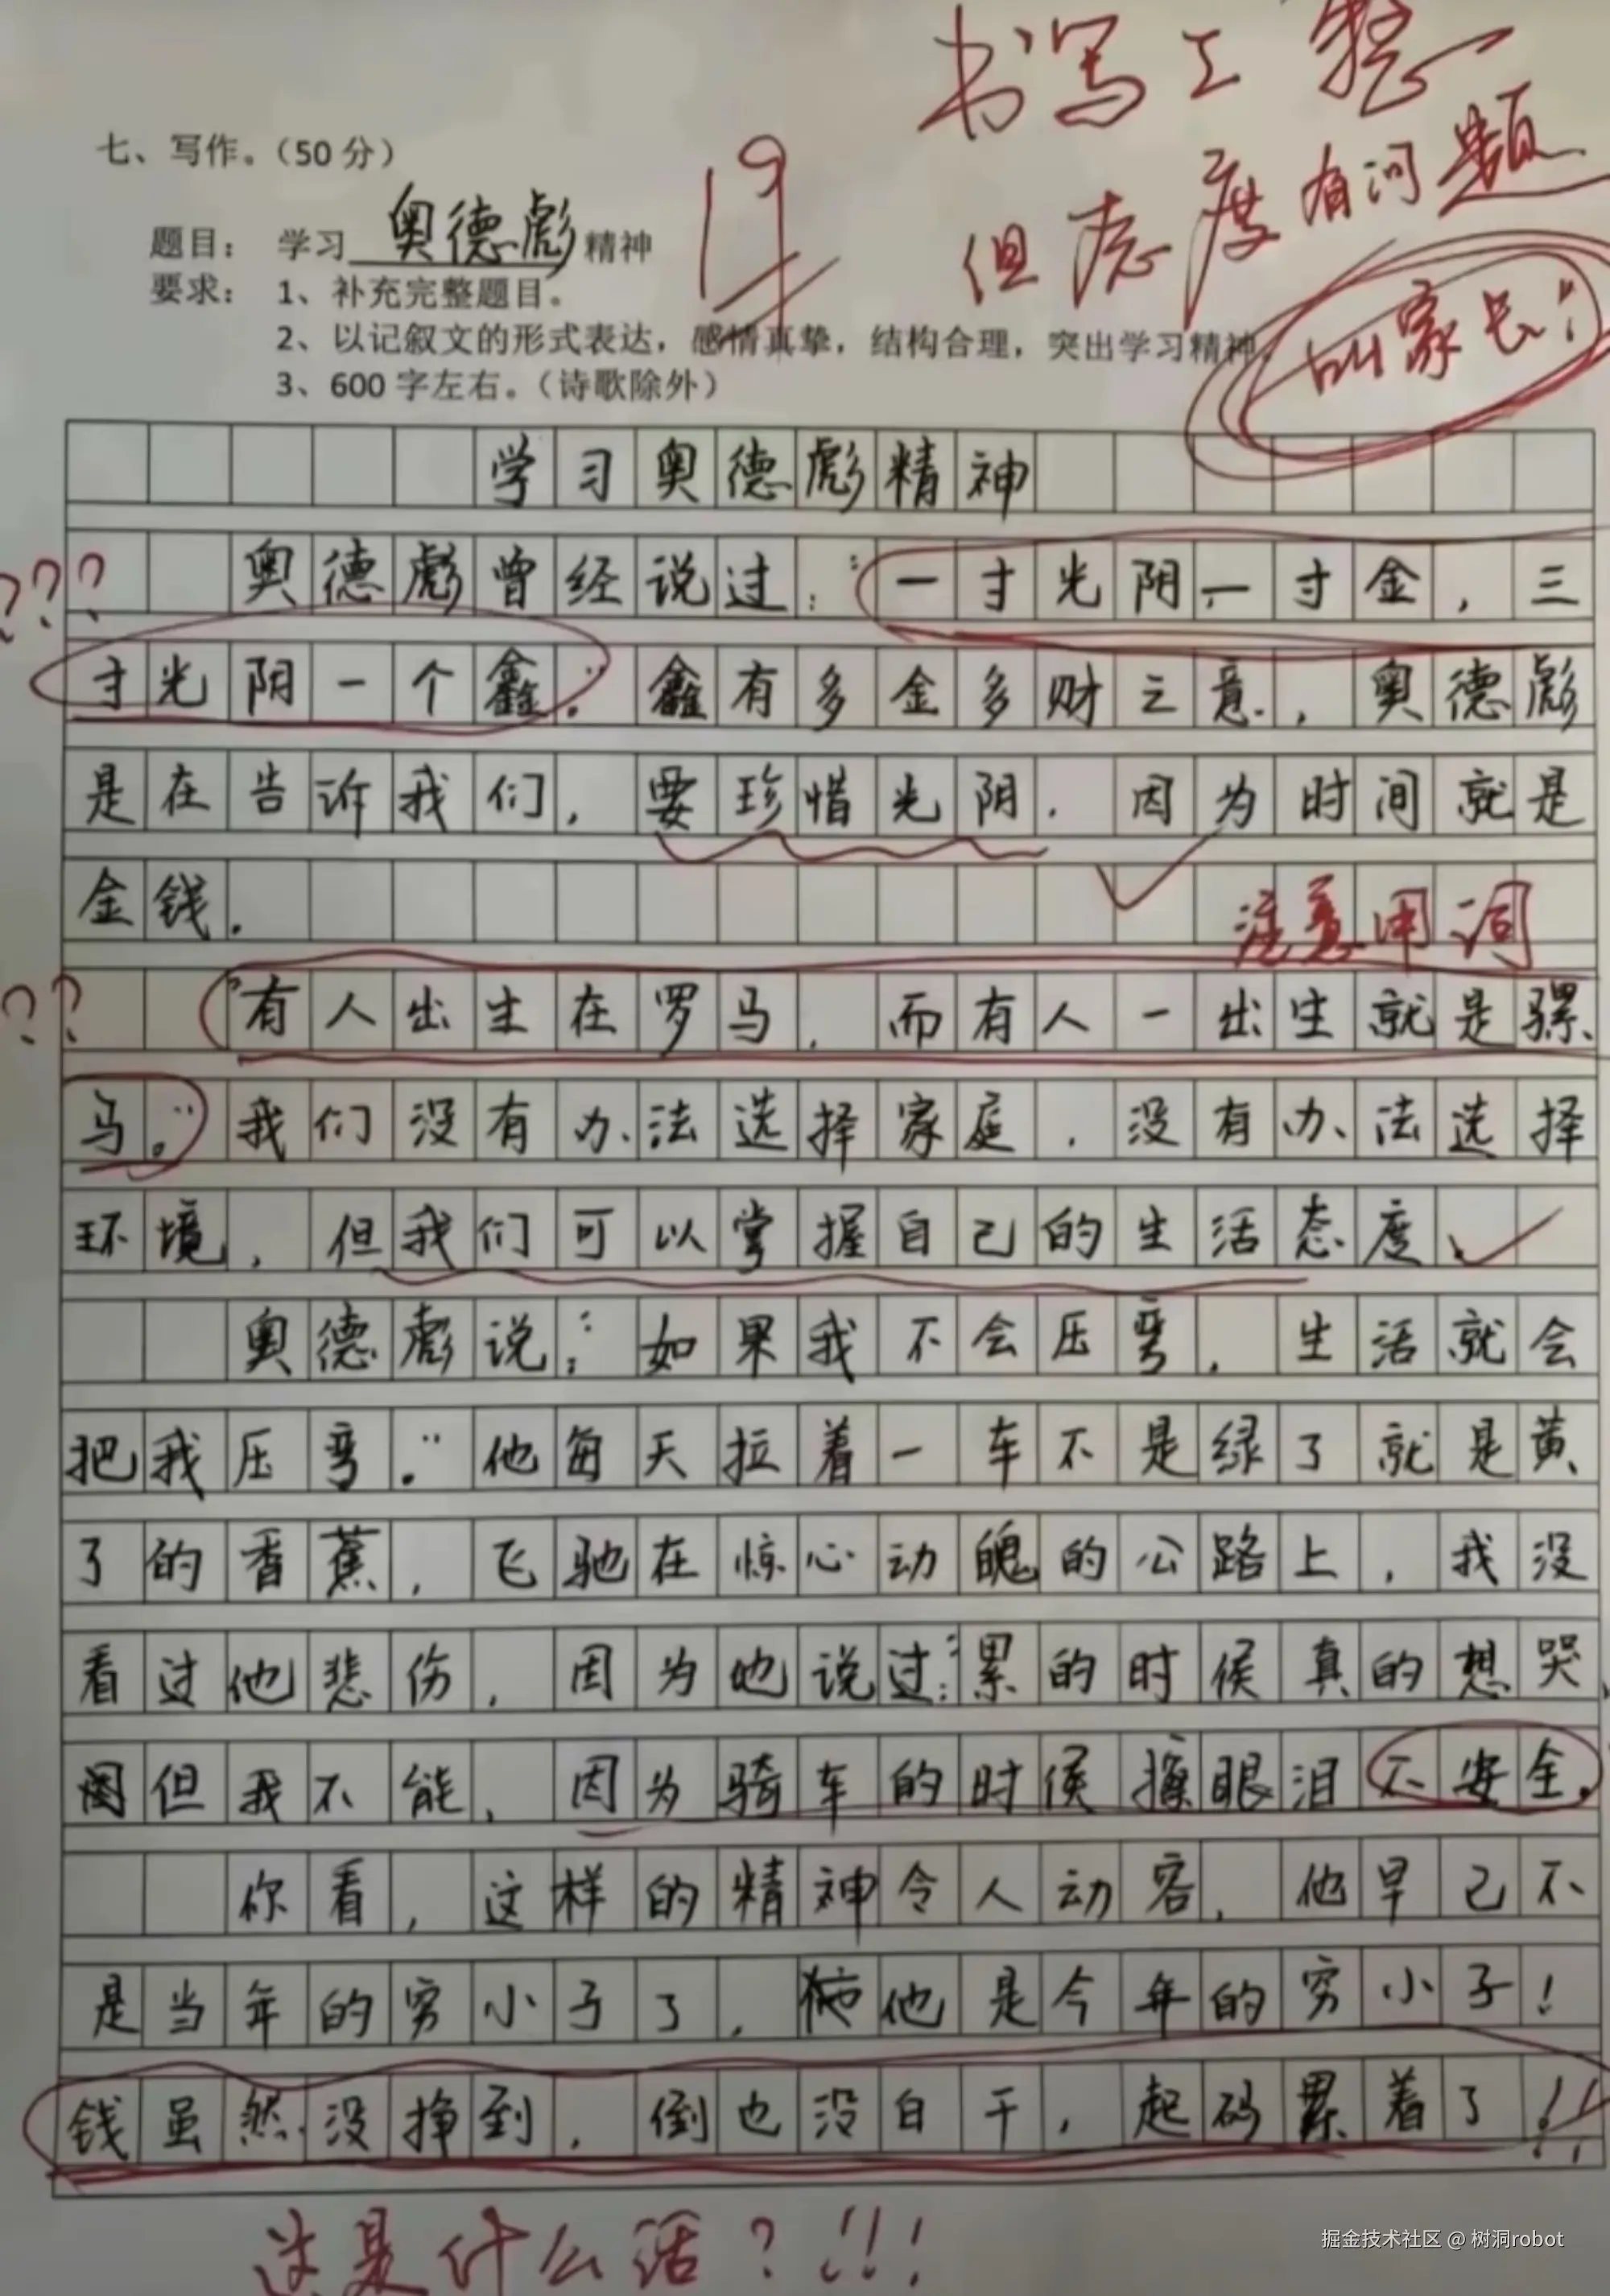 书写工整
但态度有问题
叫家长!
19
七、写作。（50 分）
题目： 学习 奥德彪 精神
要求： 1、补充完整题目。
2、以记叙文的形式表达，感情真挚，结构合理，突出学习精神。
3、600 字左右。（诗歌除外）
学习奥德彪精神
??? 奥德彪曾经说过：“一寸光阴一寸金，三
寸光阴一个鑫。”鑫有多金多财之意，奥德彪
是在告诉我们，要珍惜光阴．因为时间就是
金钱．
注意用词
?? “有人出生在罗马，而有人一出生就是骡
马。”我们没有办法选择家庭，没有办法选择
环境，但我们可以掌握自己的生活态度．
奥德彪说：“如果我不会压弯，生活就会
把我压弯．”他每天拉着一车不是绿了就是黄
了的香蕉，飞驰在惊心动魄的公路上，我没
看过他悲伤，因为他说过：“累的时候真的想哭，
但我不能，因为骑车的时候擦眼泪不安全．
你看，这样的精神令人动容，他早已不
是当年的穷小子了，他是今年的穷小子！
钱虽然没挣到，倒也没白干，起码累着了！！
这是什么话？!!!
掘金技术社区 @ 树洞robot